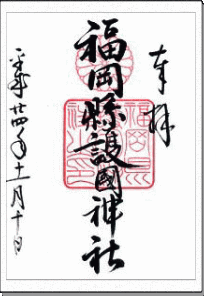 奉拝
福岡縣護國神社
平成廿四年十一月十日